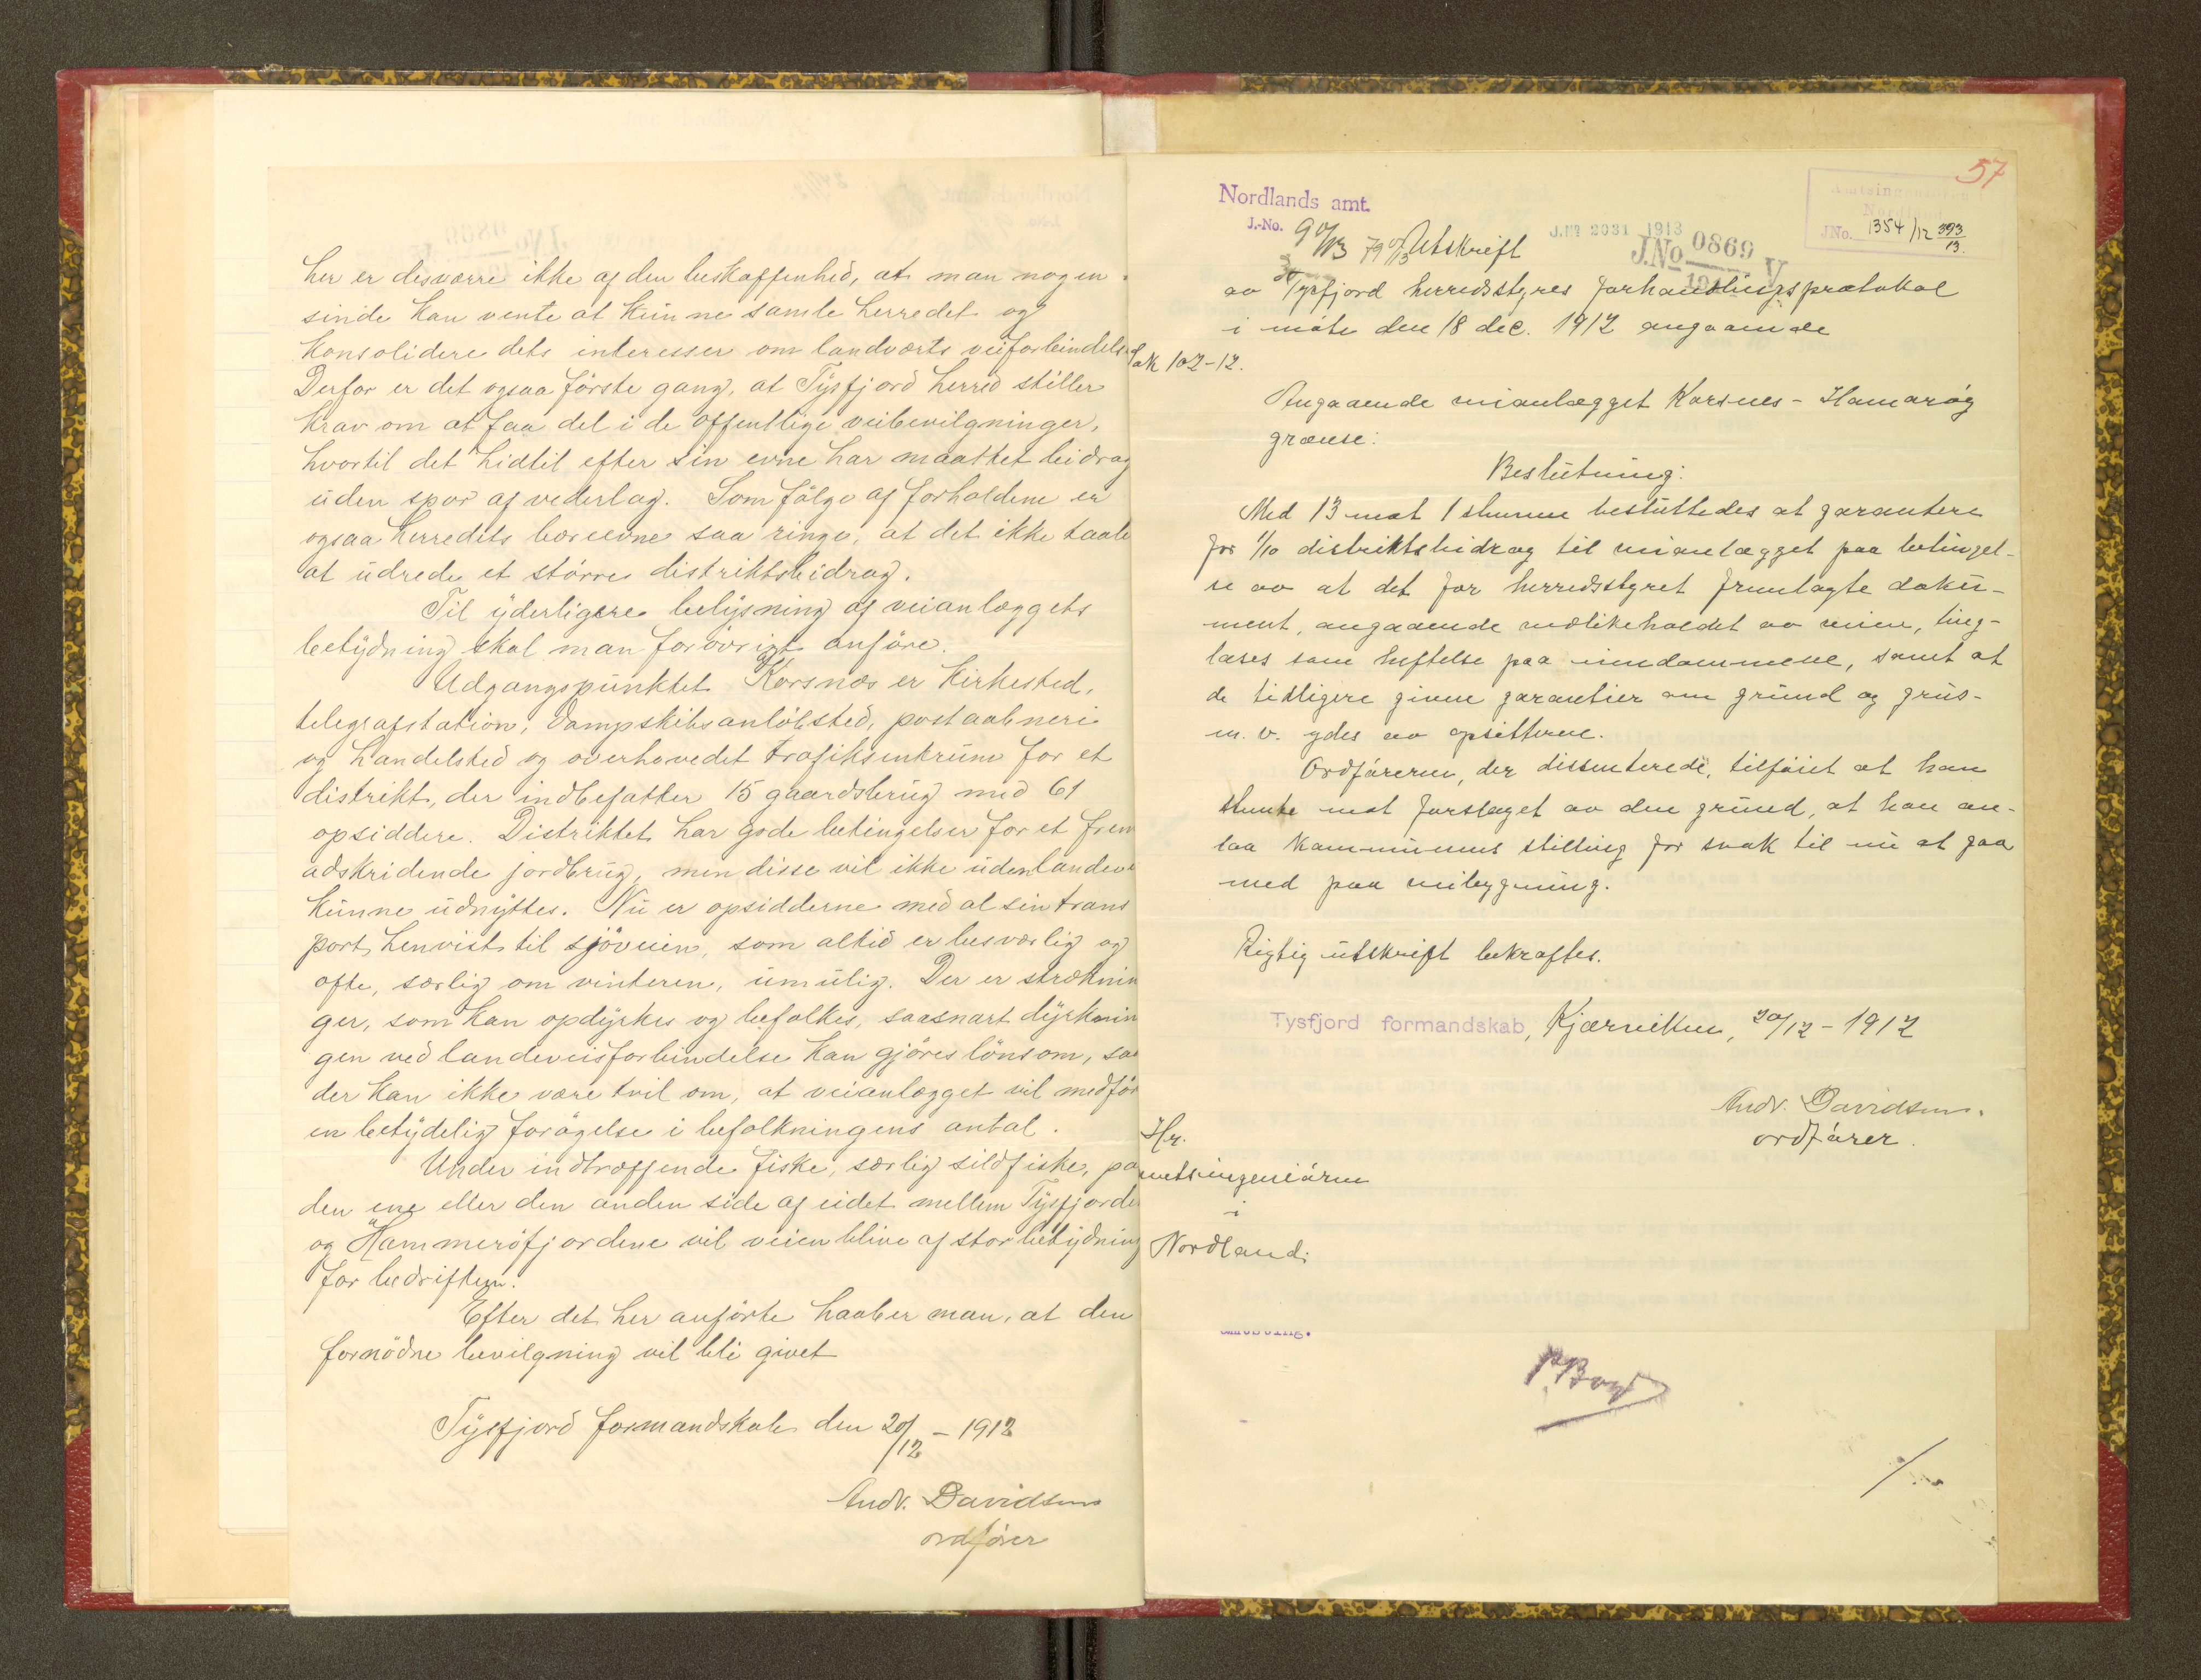 her er desværre ikke af den beskaffenhed, at man nogen-
sinde kan vente at kunne samle herredet og
konsolidere dets interesser om landværts veiforbindels
Derfor er det ogsaa förste gang, at Tysfjord herred stiller
krav om at faa del i de offentlige veibevilgninger,
hvortil det hidtil efter sin evne har maattet bidrag
uden spor af vederlag. Som fölge af forholdene er
ogsaa herredets bæreevne saa ringe, at det ikke taale
at udrede et större distriktsbidrag.
Til yderligere belysning af veianlæggets
betydning skal man forövrigt anföre.
Udgangspunktet Korsnæs er kirkested,
telegrafstation, dampskibsanlöbsted, postaabneri
og handelsted og overhovedet trafiksentrum for et
distrikt, der indbefatter 15 gaardsbrug med 61
opsiddere. Distriktet har gode betingelser for et frem
adskridende jordbrug, men disse vil ikke uden landevei
kunne udnyttes. Nu er opsidderne med al sin trans
port henvist til sjöveien, som altid er besværlig og
ofte, særlig om vinteren, umulig. Der er sträknin
ger, som kan opdyrkes og befolkes, saasnart dyrknin
gen ved landeveisforbindelse kan gjöres lönsom, saa
der kan ikke være tvil om, at veianlægget vil medför
en betydelig forögelse i befolkningens antal.
Under indtræffende fiske, særlig sildfiske, paa
den ene eller den anden side af eidet mellem Tysfjorden
og Hammeröfjordene vil veien blive af stor betydning
for bedriften.
Efter det her anförte haaber man, at den
fornödne bevilgning vil bli givet
Tysfjord formandskab den 20/12 - 1912
Andr. Davidsen
ordförer
57
Nordlands amt.
J.-No. 90/13 79/13 Utskrift
J.No 2031 1913
J.No 0869 V
JNo. 1354/12 393/13.
av Tysfjord herredsstyres forhandlingsprotokol
i möte den 18 dec. 1912 angaaende
Sak 102-12.
Angaaende veianlægget Korsnes - Hamaröy
grænse.
Beslutning:
Med 13 mot 1 stemme besluttedes at garantere
for 1/10 distriktsbidrag til veianlægget paa betingel-
se av at det for herredsstyret fremlagte doku-
ment, angaaende vedlikeholdet av veien, ting-
læses som heftelse paa eiendommene, samt at
de tidligere givne garantier om grund og grus-
m. v. ydes av opsitterne.
Ordföreren, der dissenterede, tilföiet at han
stemte mot forslaget av den grund, at han an-
saa kommunens stilling for svak til nu at gaa
med paa veibygning.
Rigtig utskrift bekræftes.
Tysfjord formandskab, Kjærviken, 20/12 - 1912
Andr. Davidsen.
ordförer.
Hr.
amtsingeniören
i
Nordland.